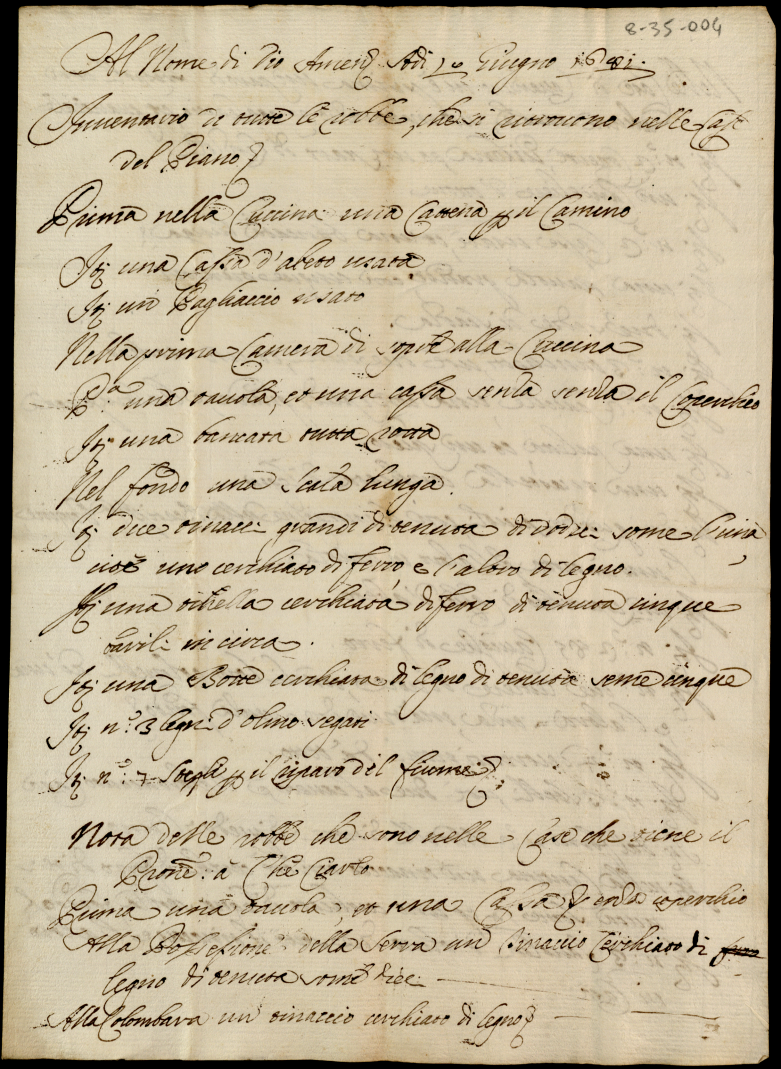 8-35-004
Al Nome di Dio Amen Adi Giugno 1681.
Inventario di tutte le robbe, che si ritrovono nelle Case
del Piano
Prima nella Cuccina una Cattena p il Camino
It. una Cassa d'abeto usata
It. un Pagliaccio usato
Nella prima Camera di sopra alla Cuccina
P.a una tavola, et una cassa senza il Coperchio
It. una bancata tutta rotta
Nel fondo una Scala lunga.
It. tinacci grandi di tenuta di some l'una
cioè uno cerchiato di ferro e l'altro di legno.
It. una cerchiata di ferro di tenuta cinque
barili in circa.
It. una Botte cerchiata di legno di tenuta some cinque
It. n.º 3 legni d'olmo segati
It. n.º 7 p il riparo del fiume
Nota delle robbe che sono nelle Case che tiene il
Prone: à
Prima una tavola, et una Cassa senza coperchio
Alla Possesione della Serra un Tinaccio Cerchiato di
legno di tenuta some dieci
Alla Colombara un tinaccio cerchiato di legno